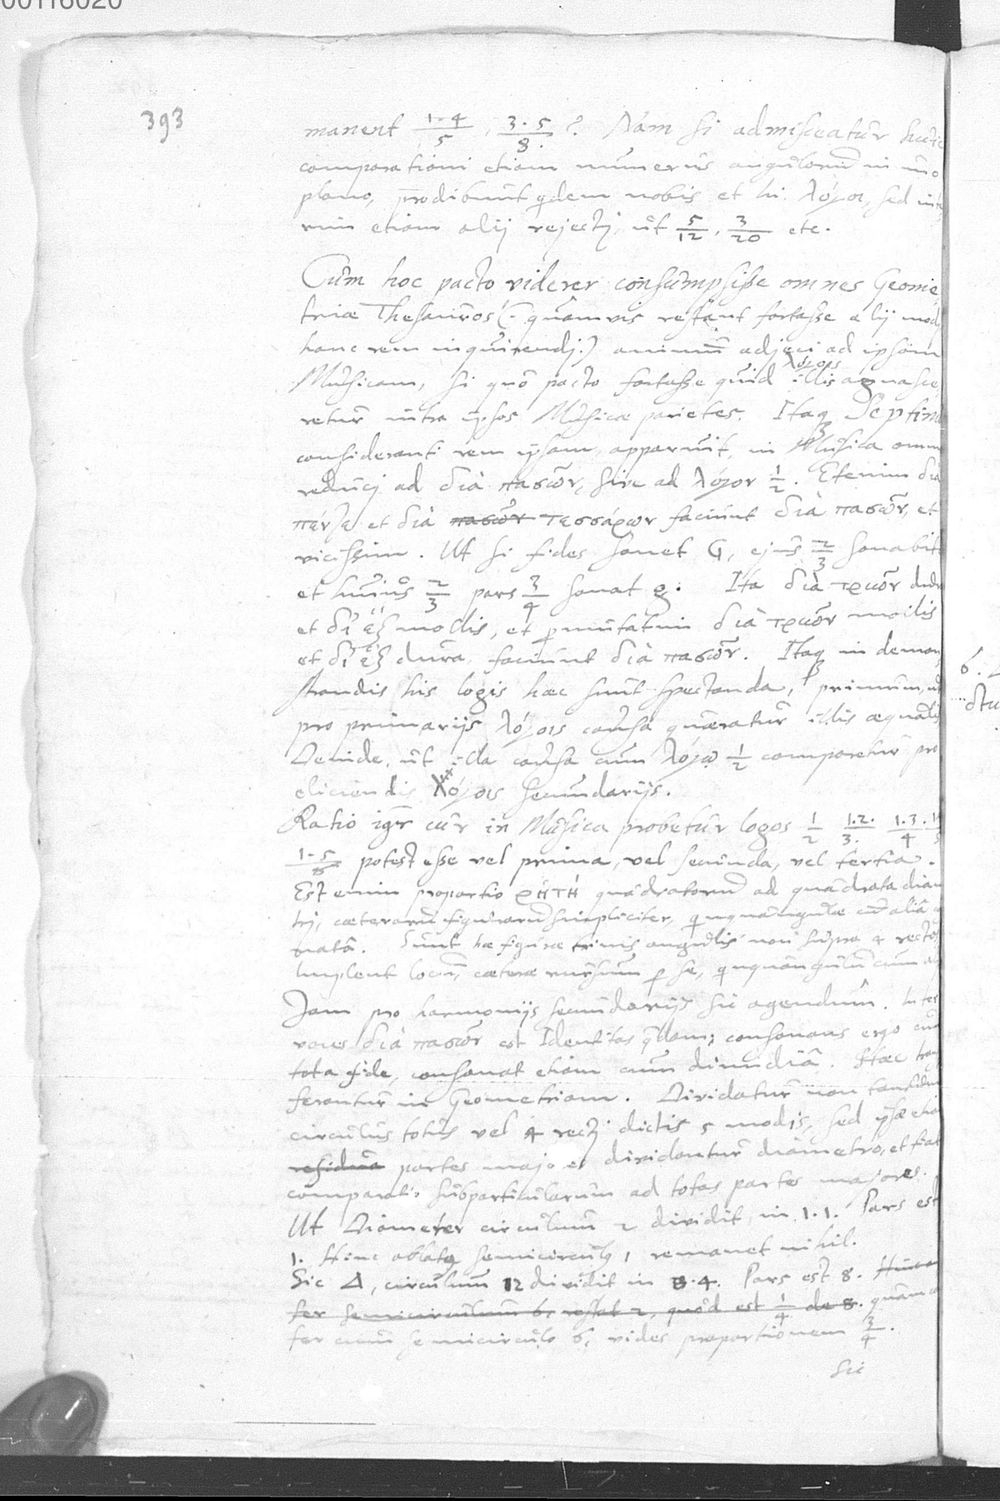 00116020
393
manent 1·4/5, 3·5/8? Nam si admisceatur huic
comparationi etiam numerus angulorū in uno
plano, prodibunt qdem nobis et hi λόγοι, sed
etiam alij rejectj, ut 5/12, 3/20 etc.
Cum hoc pacto viderer consumpsisse omnes Geome
triae Thesauros (quamvis restant fortasse alij mod
hanc rem inquirendj) animū adjeci ad ipsam
Musicam, si quo pacto fortasse quid illis λόγοις agnasce
retur intra ipsos Musicae parietes. Itaq
consideranti rem ipsam, apparuit, in Musica omn
reducj ad διὰ πασῶν, sive ad λόγον 1/2. Etenim διὰ
πέντε et διὰ πασῶν τεσσάρων faciunt διὰ πασῶν, et
vicissim. Ut si fides sonet G, ejus 2/3 sonabit
et hujus 2/3 pars 3/4 sonat g. Ita διὰ τριῶν dura
et δι ἓξ mollis, et permutatim διὰ τριῶν mollis
et δι ἓξ dura faciunt διὰ πασῶν. Itaq in demon
strandis his logis haec sunt spectanda, primum, ut
pro primarijs λόγοις causa quaeratur illis aequalis
Deinde, ut illa causa cum λόγῳ 1/2 comparetur pro
eliciendis λόγοις secundarijs.
Ratio igr cur in Musica probetur logos 1/2 1.2./3. 1.3./4
1·5/6 potest esse vel prima, vel secunda, vel tertia.
Est enim proportio ῥητὴ quadratorū ad quadrata diam
trj, caeterarū figurarū simpliciter, quinquangulae cū aliâ
natâ. Sunt hae figurae trinis angulis non supra 4 rectos
Implent locū, caeterae rursum p se, quinquangulū cum
Jam pro harmonijs secundarijs sic agendum. Inter
voces διὰ πασῶν est Identitas qdam; consonans ergo cum
tota fide, consonat etiam cum dimidiâ. Haec trans
ferantur in Geometriam. Dividatur non tantum
circulus totus vel 4 rectj dictis 5 modis, sed ipsae etiam
residua partes majores dividantur diametro, et fiat
comparatio subparticularum ad totas partes majores.
Ut Diameter circulum 2 dividit in 1.1. Pars est
1. Hinc ablatq semicirculq 1 remanet nihil.
Sic Δ, circulum 12 dividit in 8·4. Pars est 8.
fer semicirculum 6, restat 2, quod est 1/4 de 8. quam
fer cum semicirculo 6, vides proportionem 3/4.
Sic